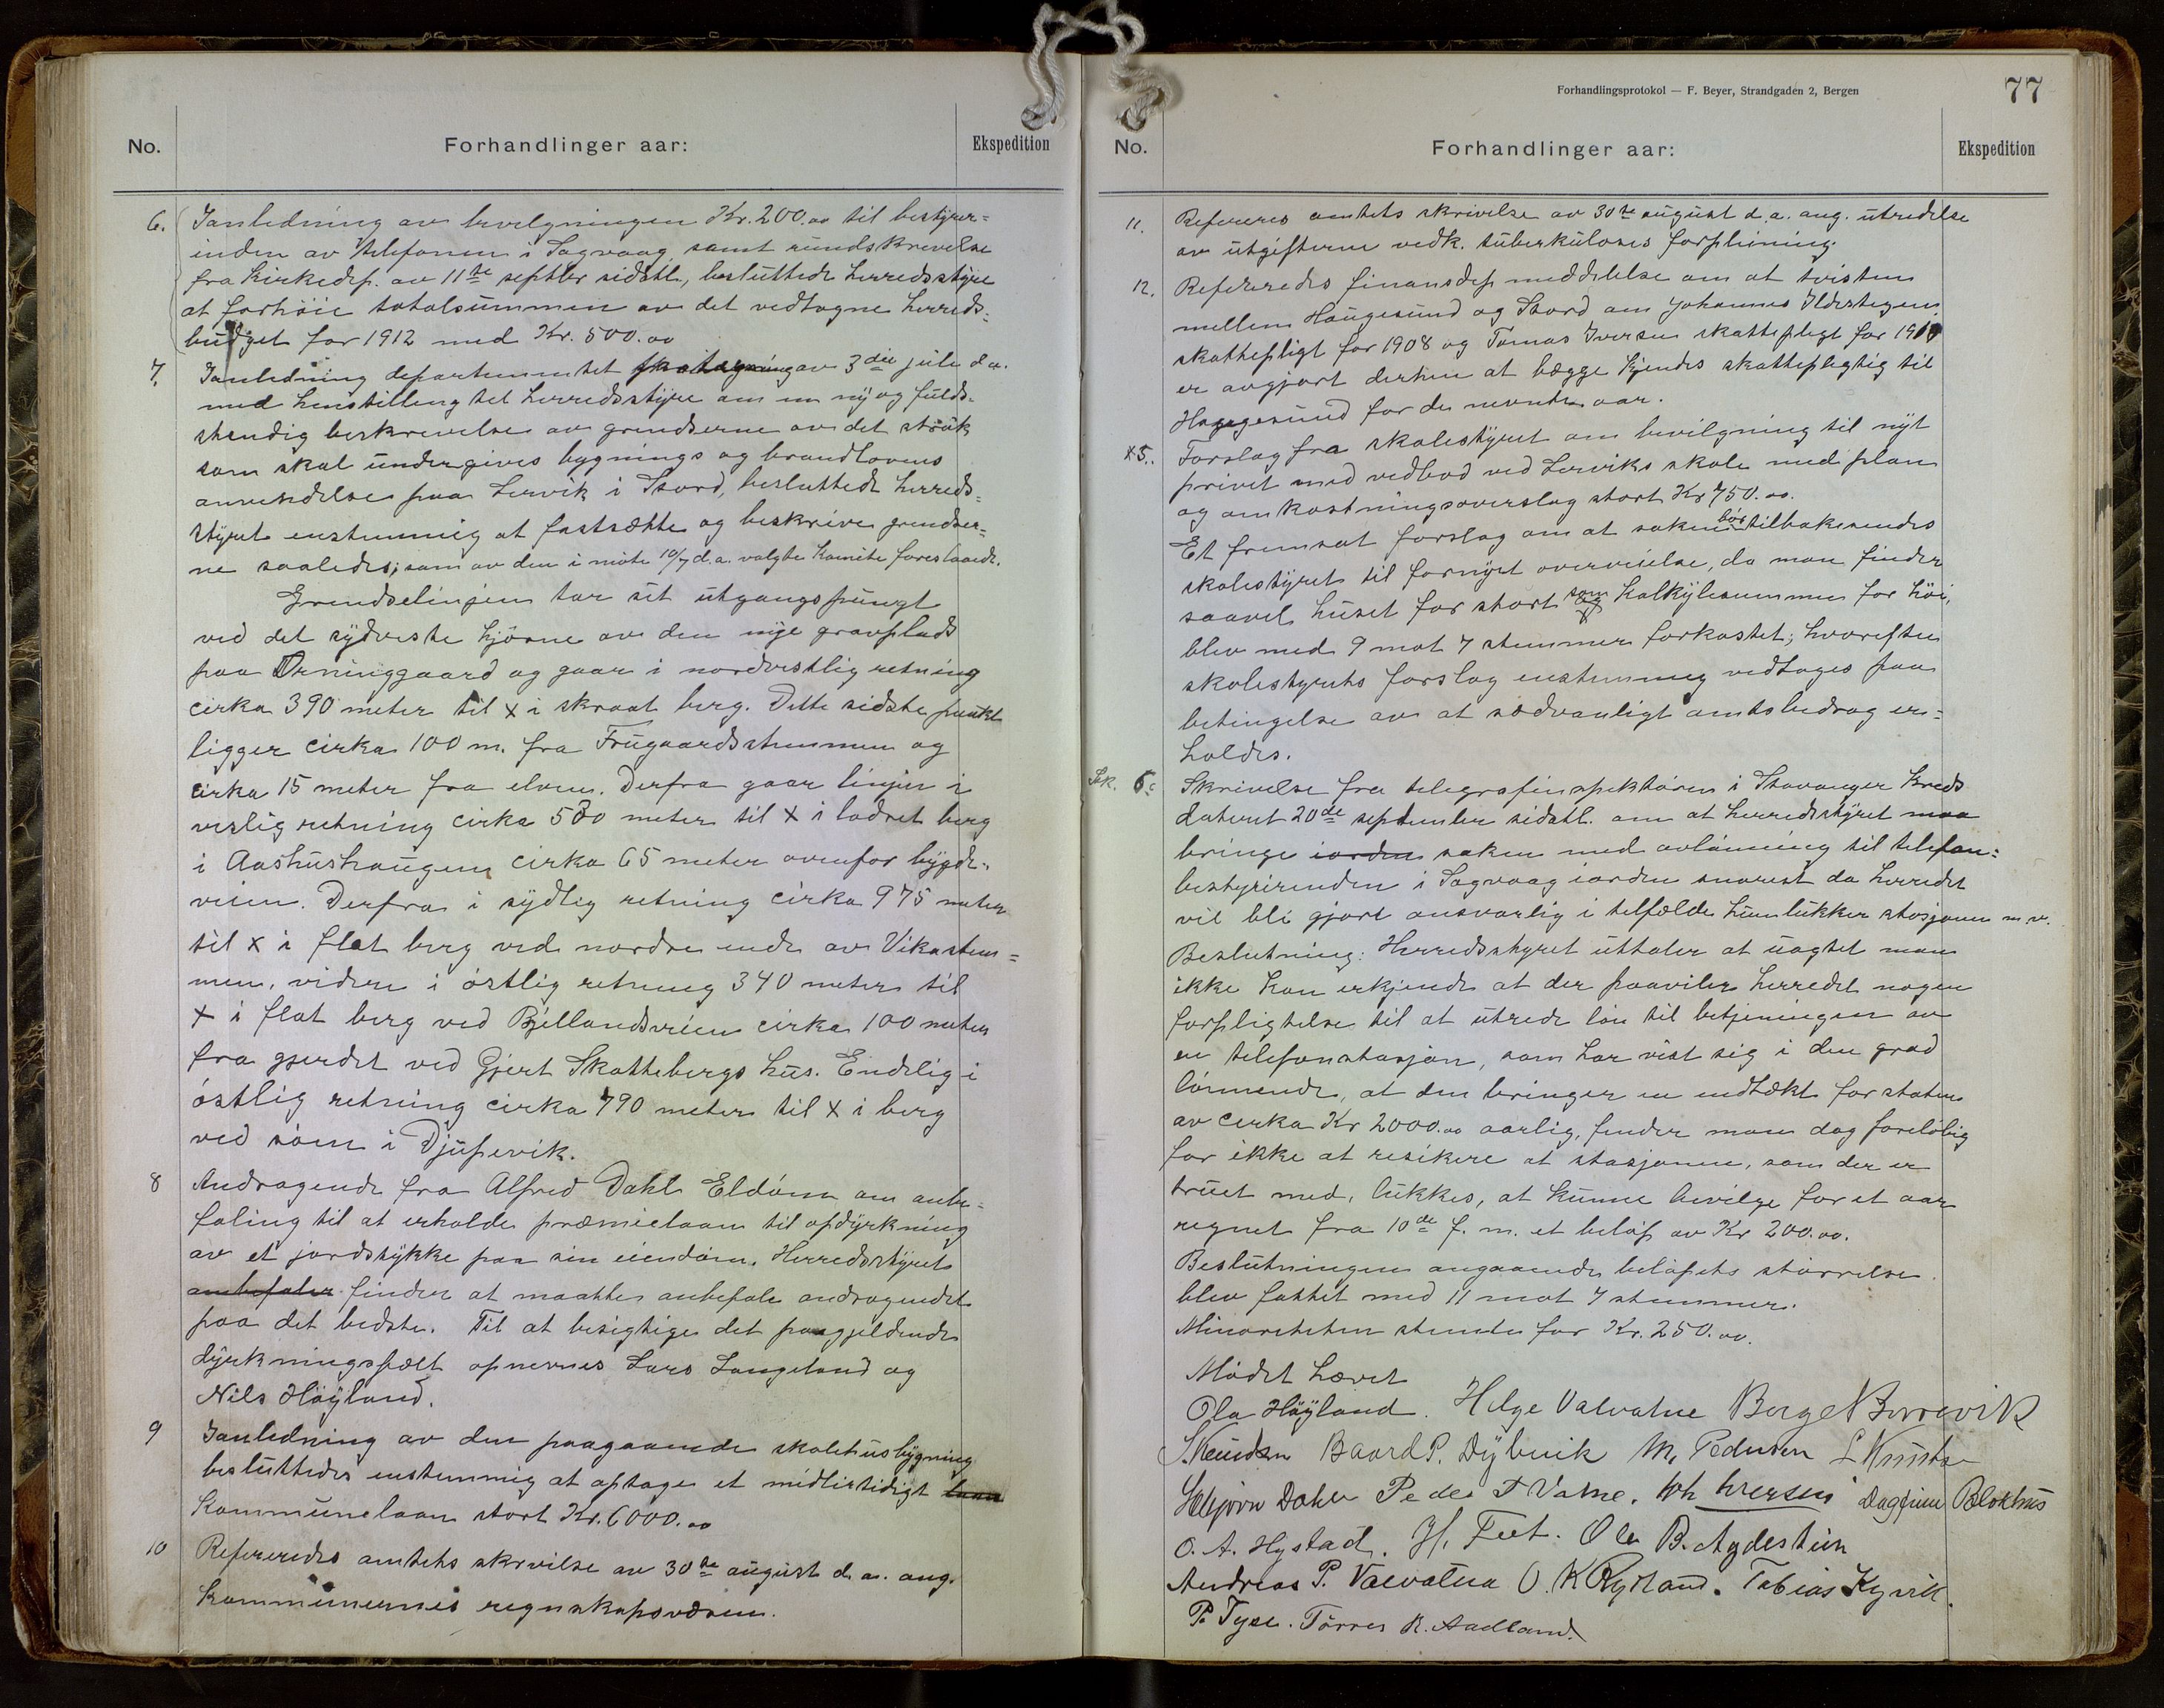 No.
Forhandlinger aar:
Ekspedition
6. Ianledning av bevilgningen Kr. 200.00 til bestyrer=
inden av telefonen i Sagvaag samt rundskrivelse
fra Kirkedep. av 11te septbr sidstl., besluttede herredsstyre
at forhöie totalsummen av det vedtagne herreds=
budget for 1912 med Kr. 500.00
7. Ianledning departementet av 3die juli d.a.
med henstilling til herredsstyre om en ny og fuld=
stendig beskrivelse av grendserne av det strök
som skal undergives bygnings og brandlovens
anvendelse paa Lervik i Stord, besluttede herreds=
styret enstemmig at fastsætte og beskrive grendser=
ne saaledes; som av den i möte 10/7 d.a. valgte komite foreslaaede.
Grendselinjen tar sit utgangspungt
ved det sydveste hjörne av den nye gravplads
paa Örninggaard og gaar i nordvestlig retning
cirka 390 meter til x i skraat berg. Dette sidste punkt
ligger cirka 100 m. fra Frugaardsstemmen og
cirka 15 meter fra elven. Derfra gaar linjen i
veslig retning cirka 580 meter til x i lodret berg
i Aashushaugen cirka 65 meter ovenfor bygde=
veien. Derfra i sydlig retning cirka 975 meter
til x i flat berg ved nordre ende av Vikastem=
men, videre i östlig retning 340 meter til
x i flat berg ved Bjellandsveien cirka 100 meter
fra gjerdet ved Gjert Skattebergs hus. Endelig i
östlig retning cirka 790 meter til x i berg
ved söen i Djupevik.
8 Andragende fra Alfred Dahl Eldöen om anbe=
faling til at erholde præmielaan til opdyrkning
av et jordstykke paa sin eiendom. Herredsstyret
anbefaler finder at maatte anbefale andragendet
paa det bedste. Til at besigtige det paagjeldende
dyrkningsfælt opnevnes Lars Langeland og
Nils Höyland.
9 Ianledning av den paagaaende skolehusbygning
besluttedes enstemmig at optage et midlertidigt laan
Kommunelaan stort Kr. 6000.00
10 Refereredes amtets skrivelse av 30te august d.a. ang.
Kommunernes regnskapsvæsen.
Forhandlingsprotokol — F. Beyer, Strandgaden 2, Bergen
77
No.
Forhandlinger aar:
Ekspedition
11. Refereres amtets skrivelse av 30te august d.a. ang. utredelse
av utgifterne vedk. tuberkuloses forpleining.
12. Refereredes finansdep meddelelse om at tvisten
mellem Haugesund og Stord om Johannes Ildstegens
skattepligt for 1908 og Tomas Iversen skattepligt for 1910
er avgjort derhen at bægge kjendes skattepligtig til
Haugesund for de nevnte aar.
x5.. Forslag fra skolestyret om bevilgning til nyt
privet med vedbod ved Lerviks skole med plan
og omkostningsoverslag stort Kr 750.00.
Et fremsat forslag om at saken bör tilbakesendes
skolestyret til fornyet overveielse, da man finder
saavel huset for stort som Kalkylesummen for höi,
blev med 9 mot 7 stemmer forkastet; hvorefter
skolestyrets forslag enstemmig vedtoges paa
betingelse av at sædvanligt amtsbedrag er=
holdes.
Sk. 6. Skrivelse fra telegrafinspektören i Stavanger Kreds
dateret 20de september sidstl. om at herredsstyret maa
bringe iorden saken med avlönning til telefon=
bestyrerinden i Sagvaag iorden snarest da herredet
vil bli gjort ansvarlig i tilfælde hun lukker stasjonen m.v.
Beslutning: Herredsstyret uttaler at uagtet man
ikke kan erkjende at der paaviler herredet nogen
forpligtelse til at utrede lön til betjeningen av
en telefonstasjon, som har vist sig i den grad
lönnende, at den bringer en indtækt for staten
av cirka Kr 2000.00 aarlig, finder man dog foreløbig
for ikke at resikere at stasjonen, som der er
truet med, lukkes, at kunne bevilge for et aar
regnet fra 10de f. m. et beløp av Kr 200.00.
Beslutningen angaaende beløpets störrelse
blev fattet med 11 mot 7 stemmer.
Minoriteten stemte for Kr. 250.00.
Mödet hævet
Ola Höyland. Helge Valvatne Berge Borrevik
S. Knudsen Baard P. Dybvik M. Pedersen L Knutsen
Dahle Peder T Vatne. Joh Iversen Dagfinn Blokhus
O. A. Hystad. H. Feet. Ole B. Agdestein
Andreas P. Valvatna O. K Rydland. Tobias Kyvik.
P. Tyse. Törres R. Aadland.